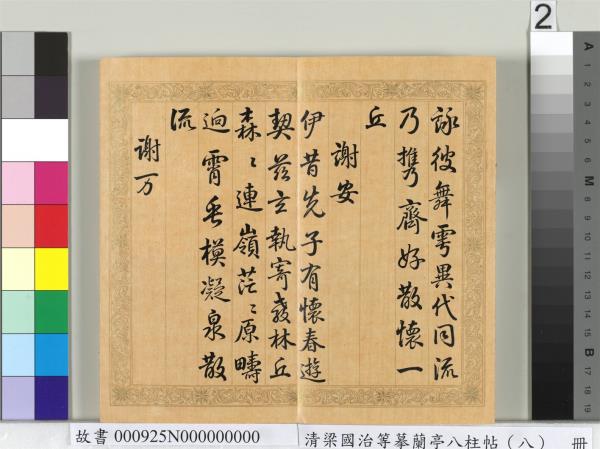 詠彼舞雩異代同流
乃携齊好散懷一
丘
謝安
伊昔先子有懷春遊
契茲言執寄敖林丘
森〻連嶺茫〻原疇
逈霄垂模凝泉散
流
謝万
2
故書 000925N000000000
清梁國治等摹蘭亭八柱帖（八） 冊
A 1 2 3 4 5 6 M 8 9 10 11 12 13 14 15 B 17 18 19